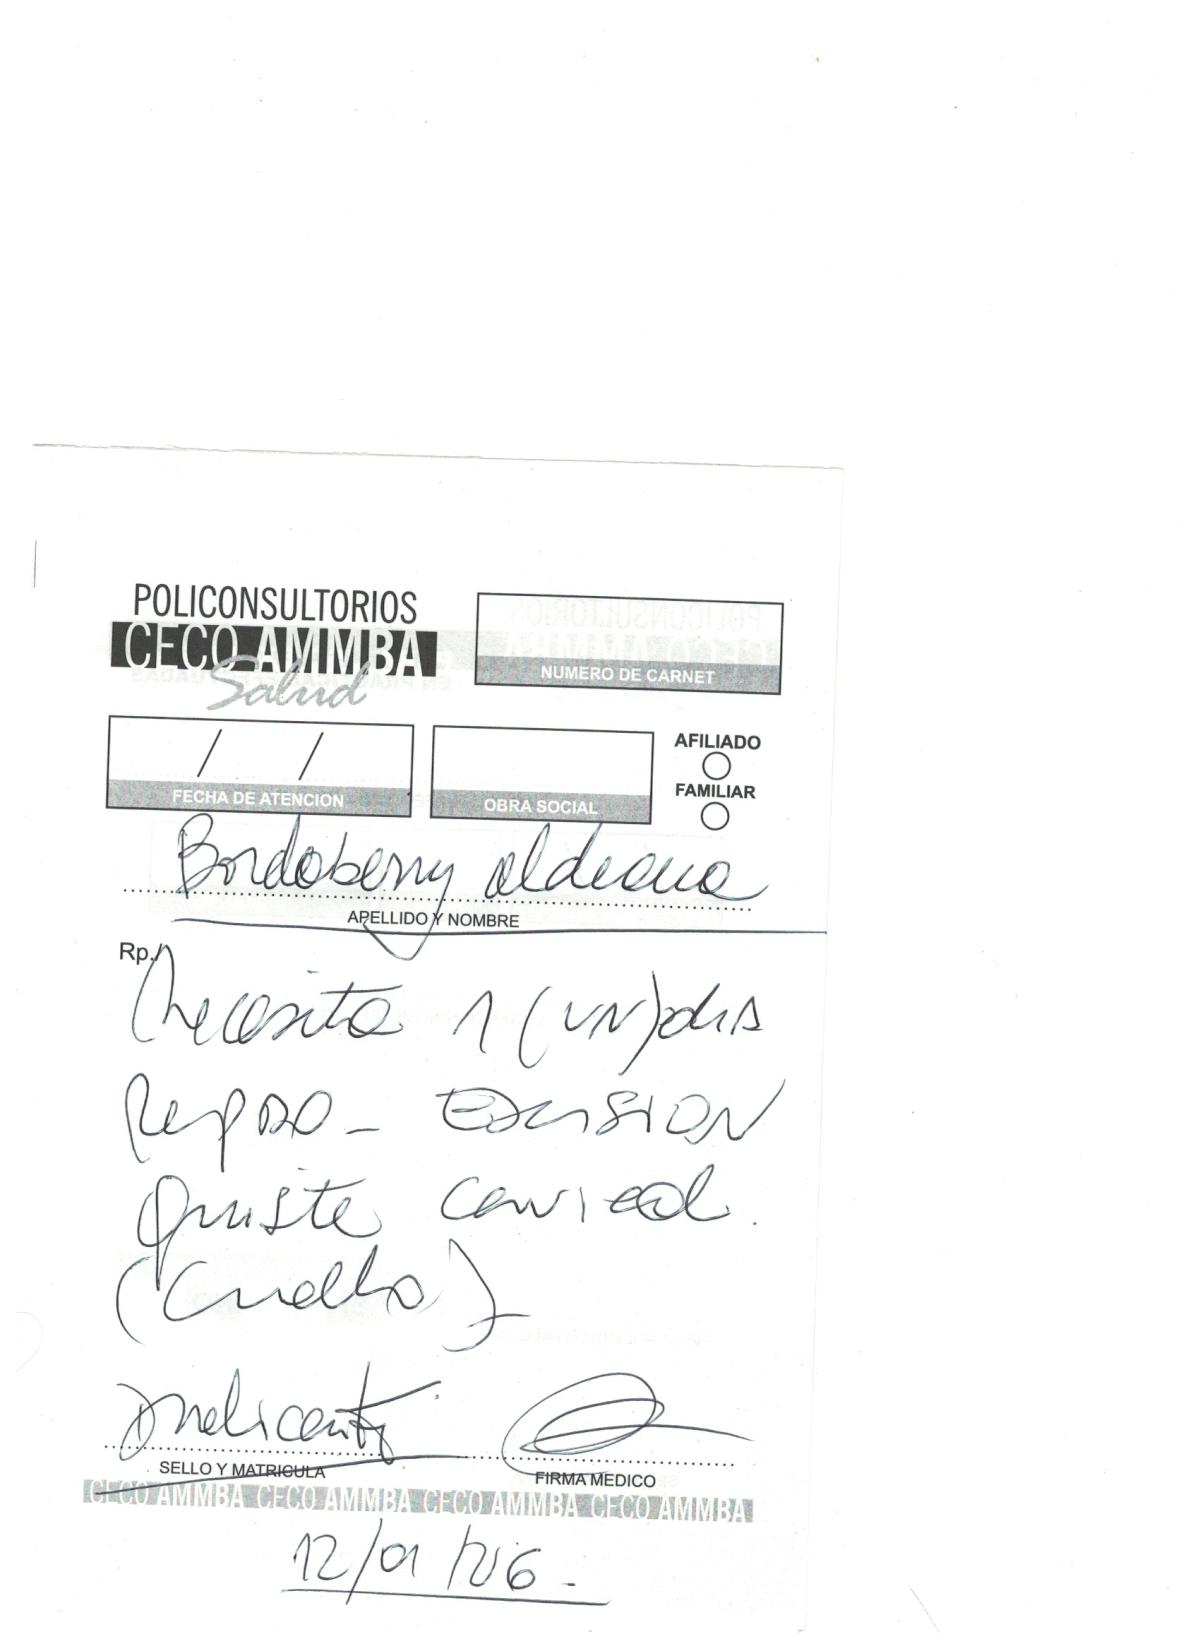 POLICONSULTORIOS
CECO AMMBA
Salud
NUMERO DE CARNET
/ /
FECHA DE ATENCION
OBRA SOCIAL
AFILIADO
FAMILIAR
Bordoberry aldeana
APELLIDO Y NOMBRE
Rp./
Necesita 1 (UN) dia
Reposo - EXCISION
Quiste cervical.
(Cuello)
SELLO Y MATRICULA
FIRMA MEDICO
CECO AMMBA CECO AMMBA CECO AMMBA CECO AMMBA
12/01/